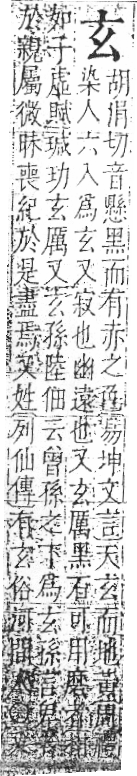 玄
胡涓切音懸黑而有赤之色易坤文言天玄而地黃周禮
染人六入爲玄又寂也幽遠也又玄厲黑石可用磨者相
如子虛賦瑊玏玄厲又玄孫陸佃云曾孫之下爲玄孫言
於親屬微昧喪紀於是盡焉又姓列仙傳有玄俗河間